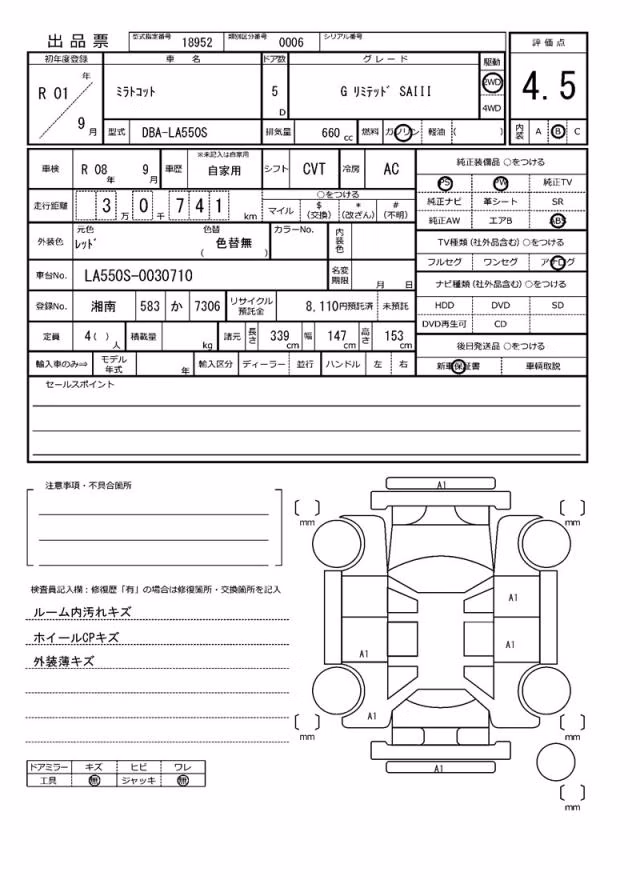 出品票 型式指定番号 18952 類別区分番号 0006 シリアル番号
初年度登録 車名 ドア数 グレード 駆動 評価点
R 01 年 9 月 ミラトコット 5 D G リミテッド SAIII 2WD 4WD 4.5
型式 DBA-LA550S 排気量 660 cc 燃料 ガソリン 軽油 ( ) 内装 A B C
車検 R 08 年 9 月 車歴 ※未記入は自家用 自家用 シフト CVT 冷房 AC
走行距離 3 万 0 千 7 4 1 km ○をつける マイル $ (交換) * (改ざん) # (不明)
外装色 元色 レッド 色替 色替無 ( ) カラーNo. 内装色
車台No. LA550S-0030710 名変期限 月 日
登録No. 湘南 583 か 7306 リサイクル預託金 8,110円預託済 未預託
定員 4( ) 人 積載量 kg 諸元 長さ 339 cm 幅 147 cm 高さ 153 cm
輸入車のみ⇒ モデル年式 年 輸入区分 ディーラー 並行 ハンドル 左 右
純正装備品 ○をつける
PS PW 純正TV
純正ナビ 革シート SR
純正AW エアB ABS
TV種類 (社外品含む) ○をつける
フルセグ ワンセグ アナログ
ナビ種類 (社外品含む) ○をつける
HDD DVD SD
DVD再生可 CD
後日発送品 ○をつける
新車保証書 車輌取説
セールスポイント
注意事項・不具合箇所
検査員記入欄：修復歴「有」の場合は修復箇所・交換箇所を記入
ルーム内汚れキズ
ホイールCPキズ
外装薄キズ
ドアミラー キズ ヒビ ワレ
工具 無 ジャッキ 無
A1
mm mm
A1
A1 A1
A1
mm mm
A1
mm